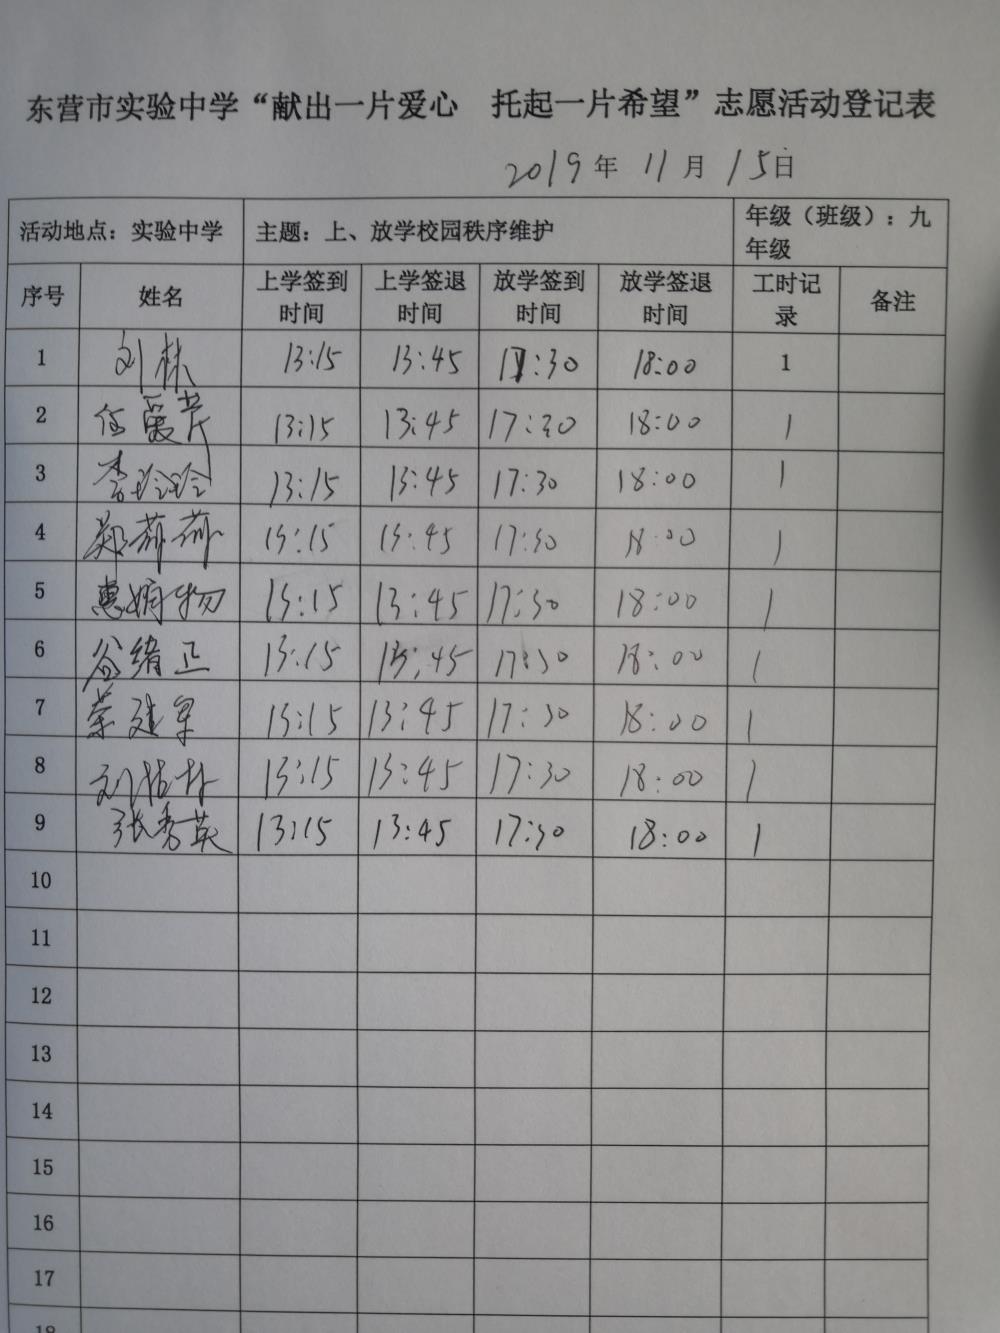 东营市实验中学“献出一片爱心 托起一片希望”志愿活动登记表
2019年 11月 15日
活动地点：实验中学 主题：上、放学校园秩序维护 年级（班级）：九年级
序号 姓名 上学签到时间 上学签退时间 放学签到时间 放学签退时间 工时记录 备注
1 刘林 13:15 13:45 17:30 18:00 1
2 任爱芹 13:15 13:45 17:30 18:00 1
3 李玲玲 13:15 13:45 17:30 18:00 1
4 郑荷荷 13:15 13:45 17:30 18:00 1
5 惠娟 13:15 13:45 17:30 18:00 1
6 谷绪卫 13:15 13:45 17:30 18:00 1
7 荣建军 13:15 13:45 17:30 18:00 1
8 刘 13:15 13:45 17:30 18:00 1
9 张秀英 13:15 13:45 17:30 18:00 1
10
11
12
13
14
15
16
17
18